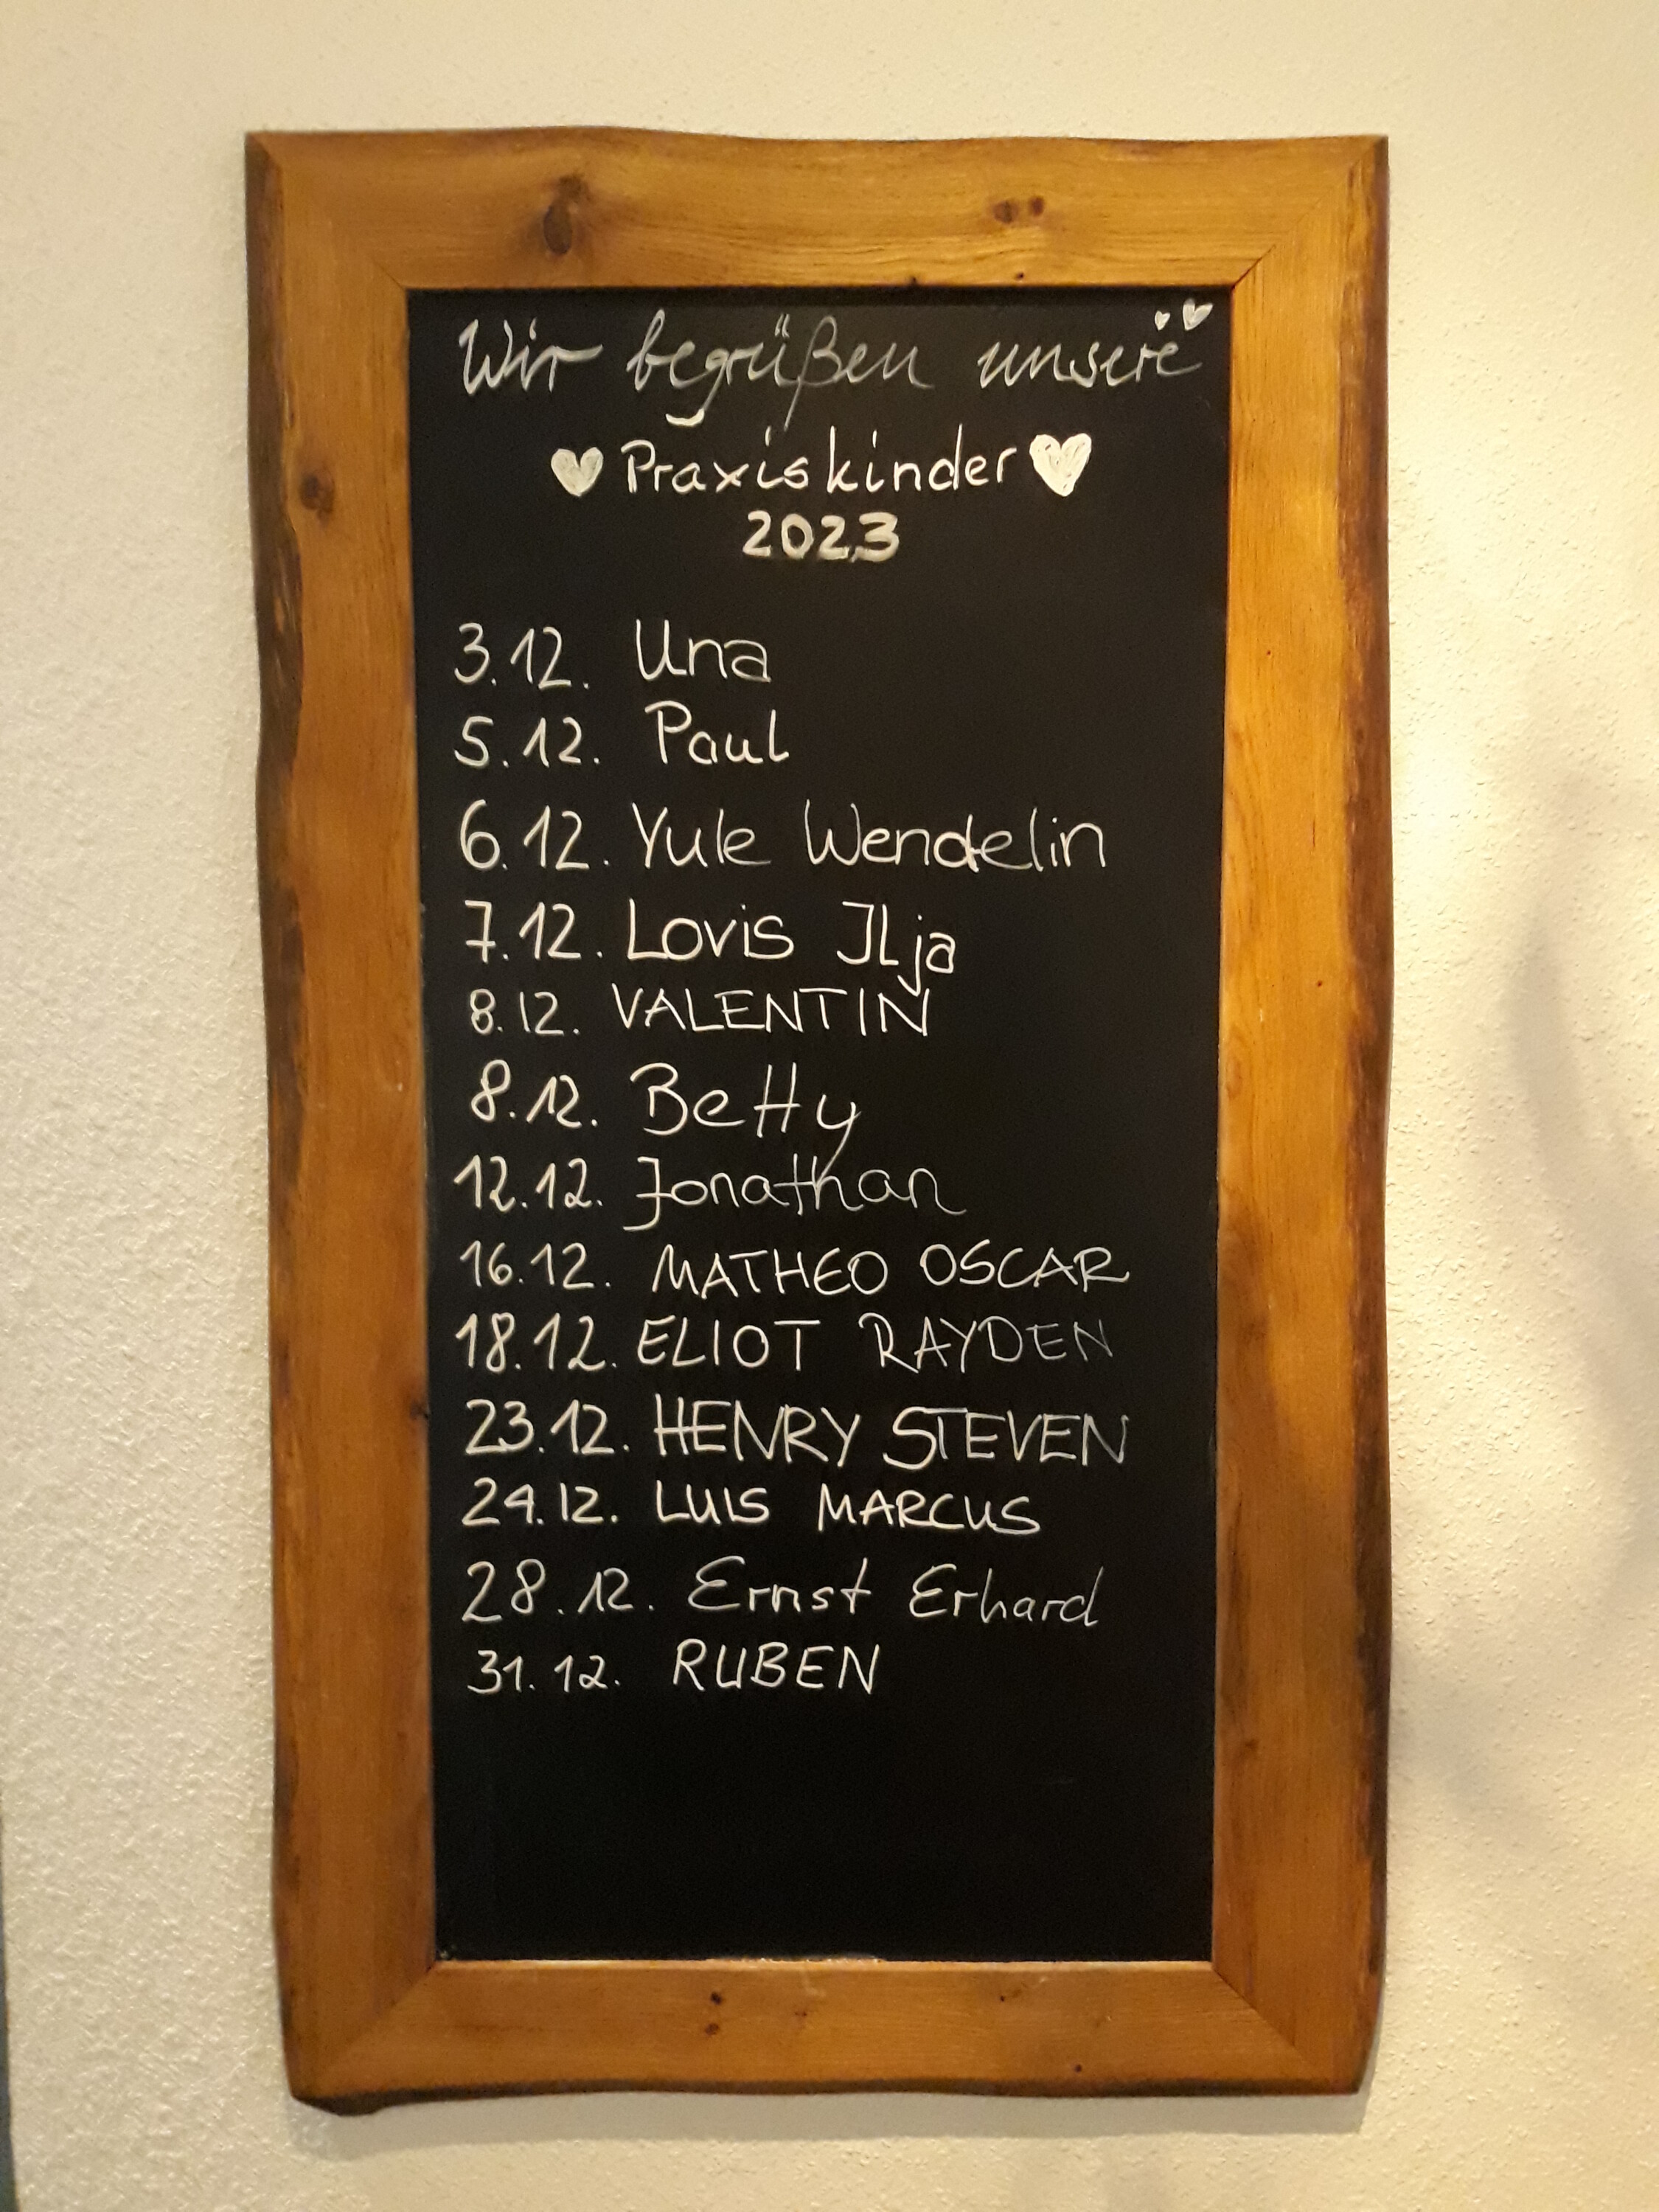 Wir begrüßen unsere
Praxiskinder
2023
3.12. Una
5.12. Paul
6.12. Yule Wendelin
7.12. Lovis Ilja
8.12. VALENTIN
8.12. Betty
12.12. Jonathan
16.12. MATHEO OSCAR
18.12. ELIOT RAYDEN
23.12. HENRY STEVEN
24.12. LUIS MARCUS
28.12. Ernst Erhard
31.12. RUBEN